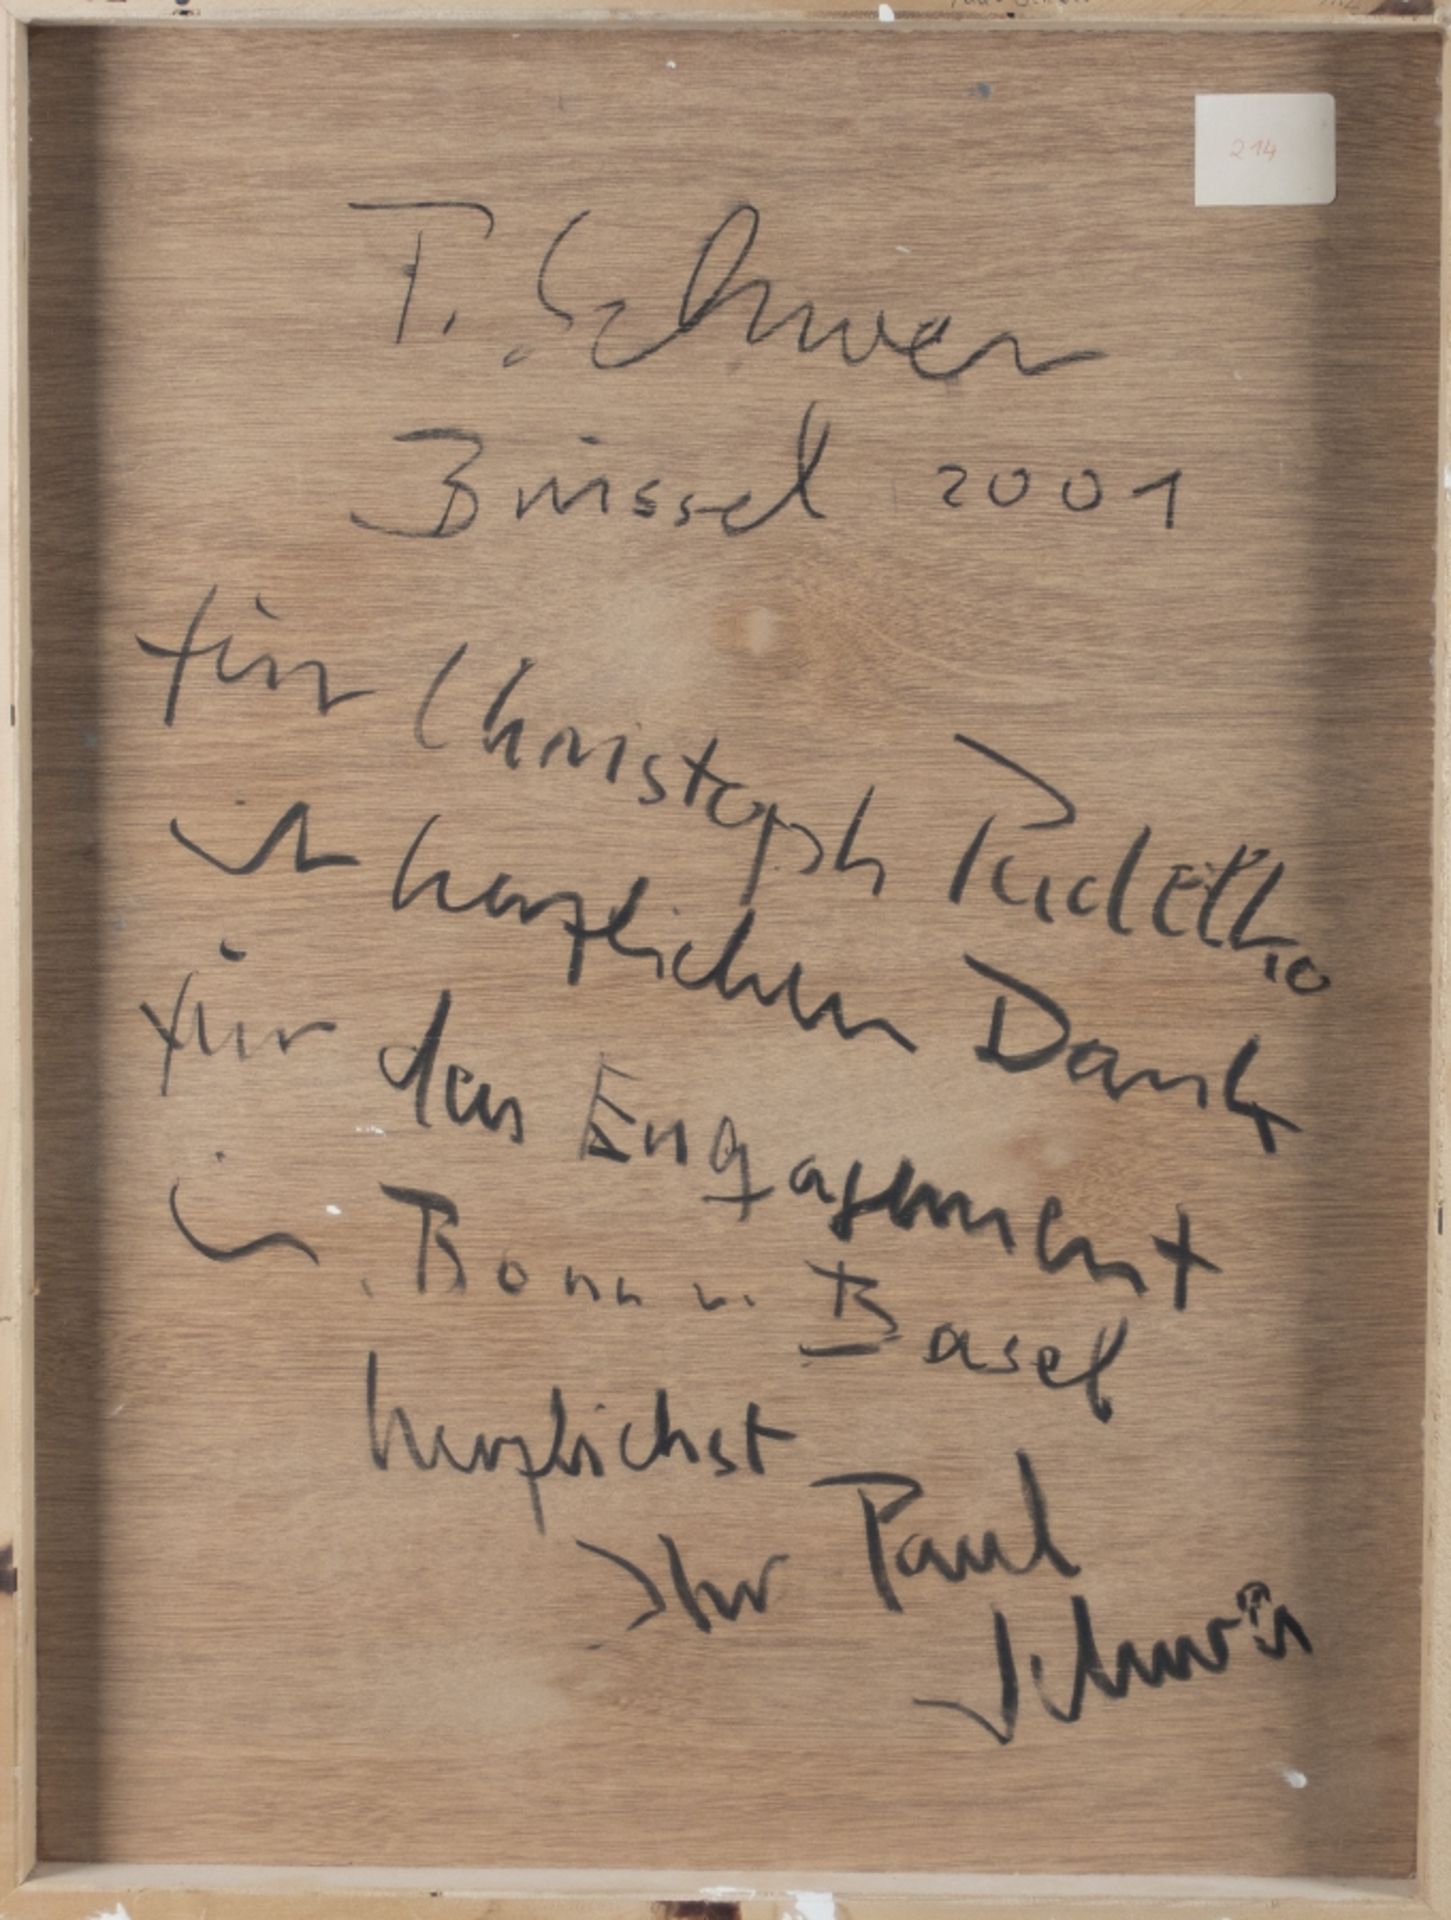 214
P. Schwer
Brüssel 2001
für Christoph
herzlichen Dank
für das Engagement
in Bonn u. Basel
herzlichst
Ihr Paul
Schwer